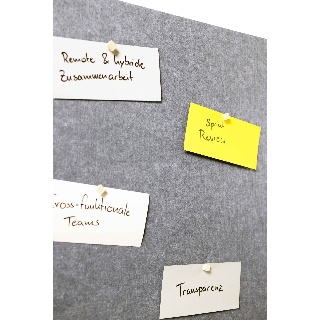 Remote & hybride
Zusammenarbeit
Sprint
Review
Cross-funktionale
Teams
Transparenz